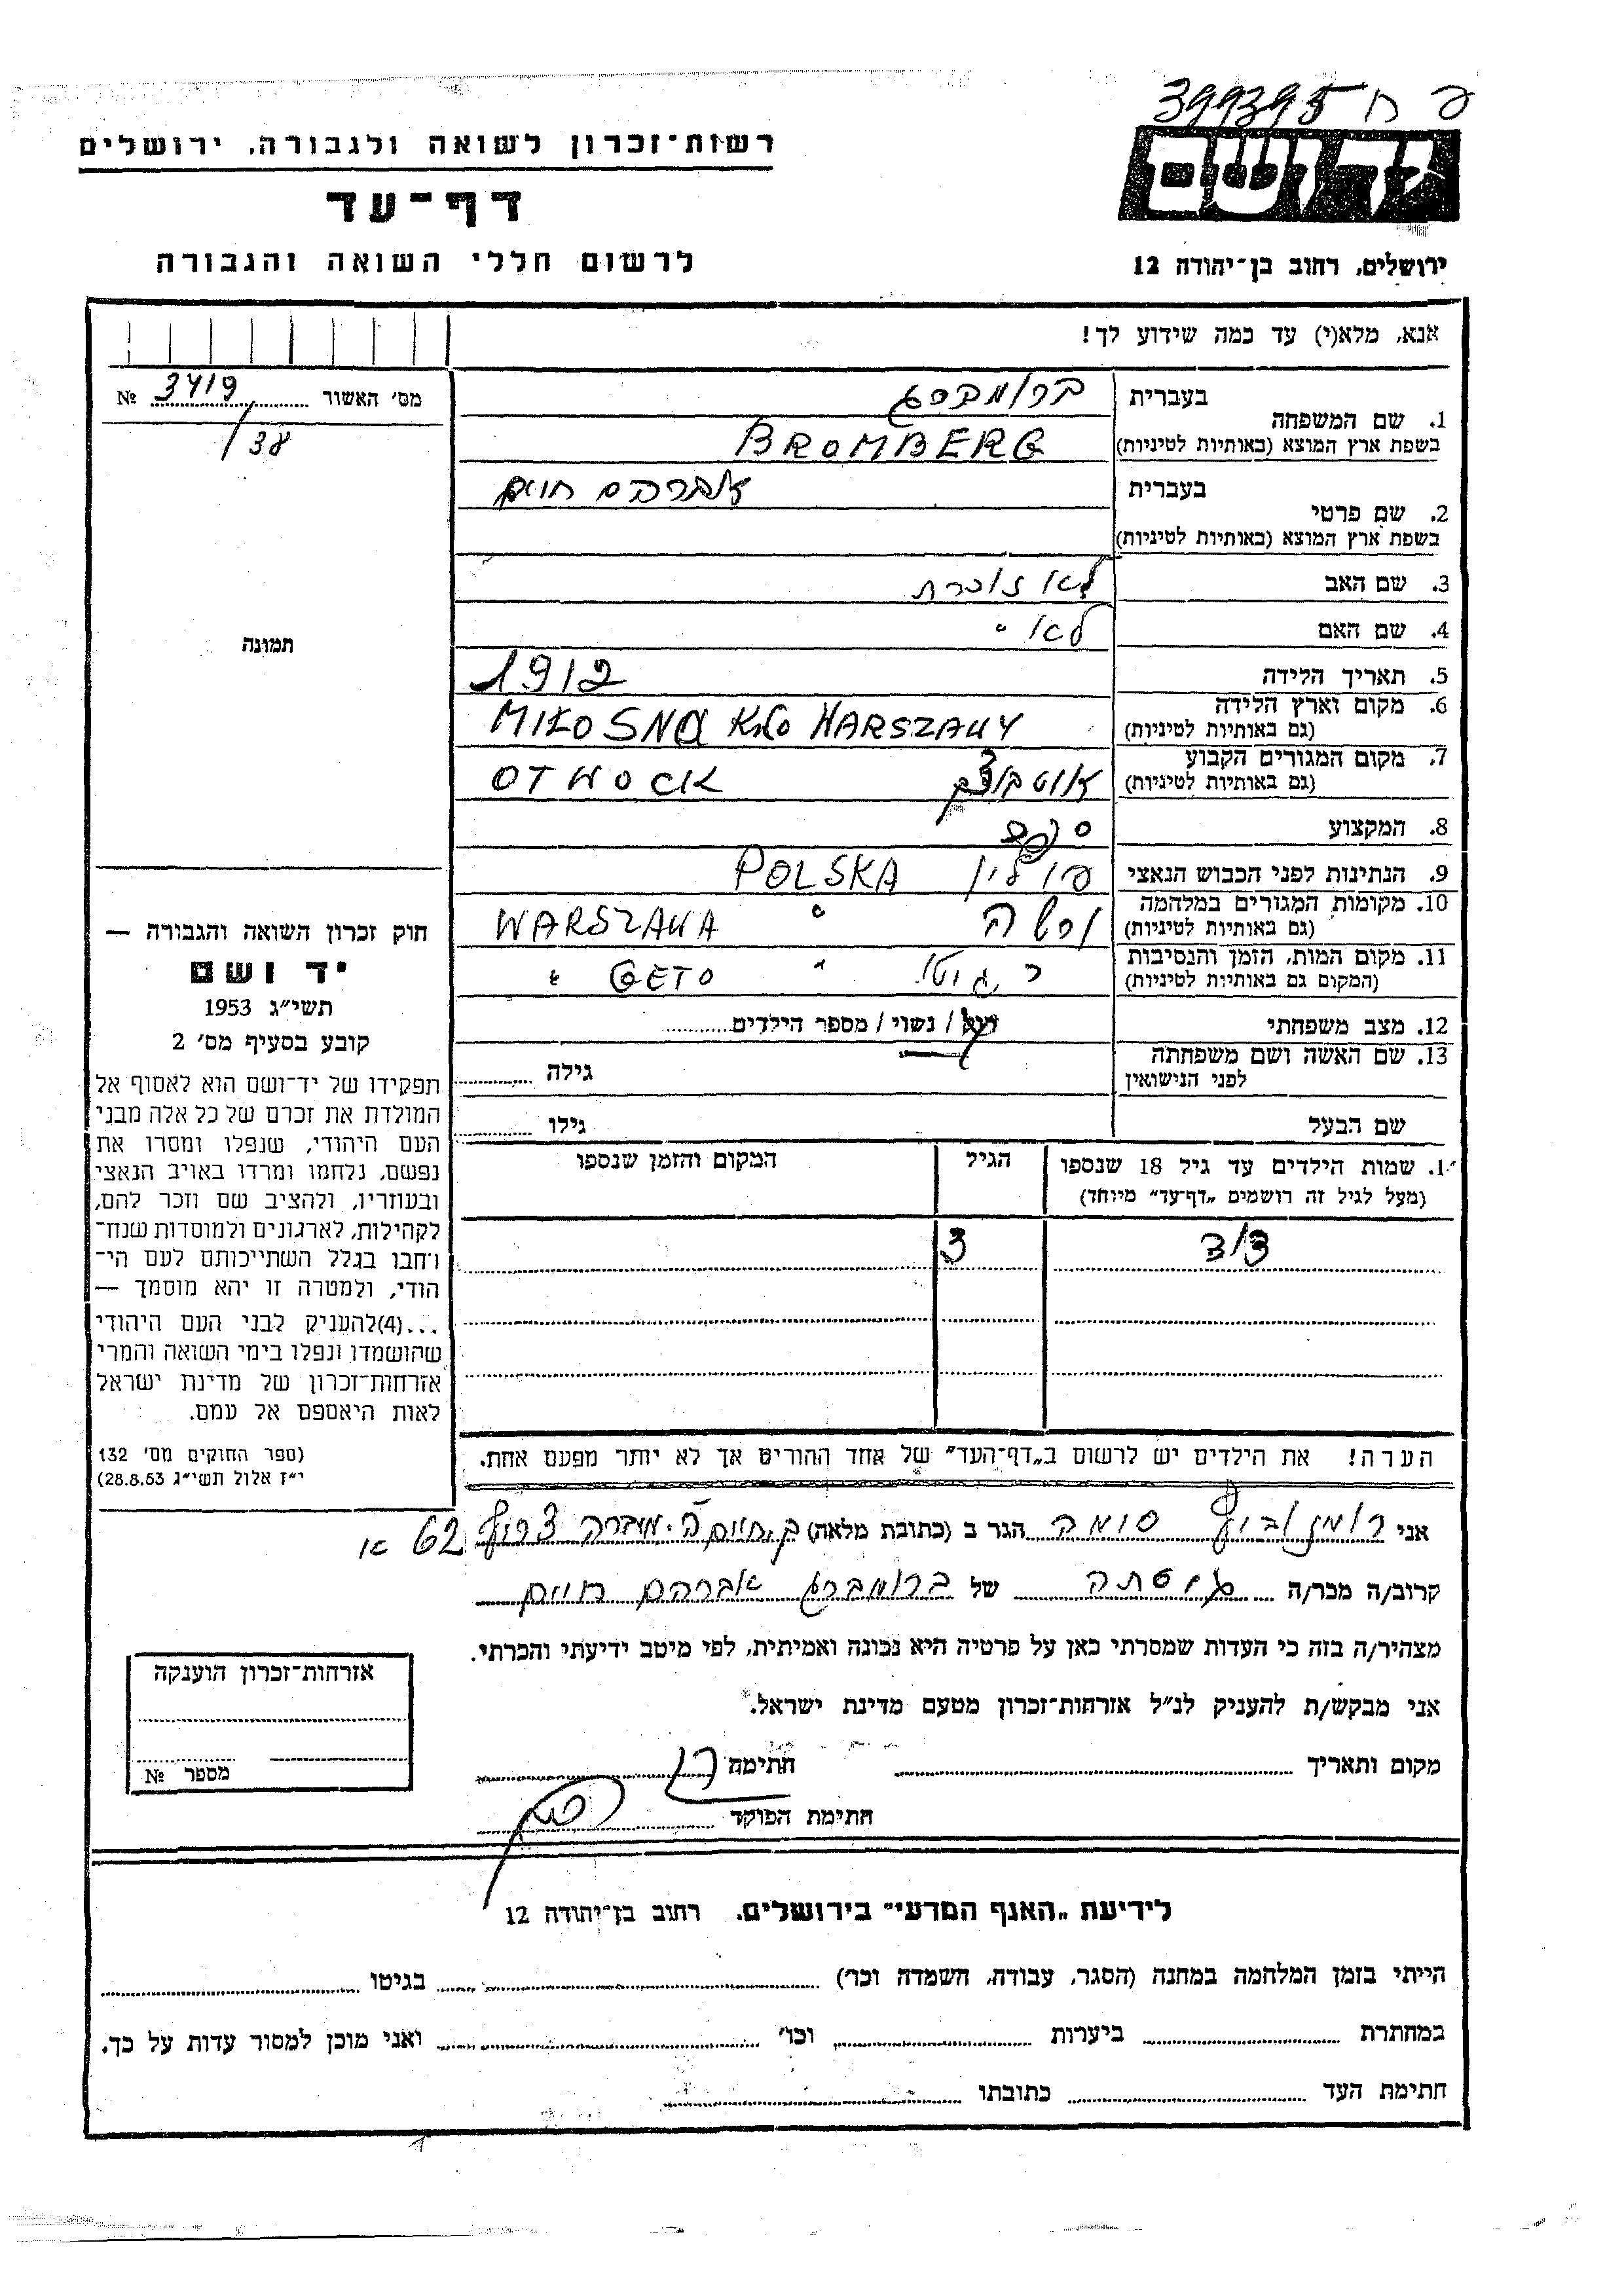 פ ח 399395
יד ושם
רשות־זכרון לשואה ולגבורה, ירושלים
דף־עד
ירושלים, רחוב בן־יהודה 12
לרשום חללי השואה והגבורה
אנא, מלא(י) עד כמה שידוע לך!
מס׳ האשור 3419 №
/38
תמונה
1. שם המשפחה
בעברית ברומברג
בשפת ארץ המוצא (באותיות לטיניות) BROMBERG
2. שם פרטי
בעברית אברהם חיים
בשפת ארץ המוצא (באותיות לטיניות)
3. שם האב לא זוכרת
4. שם האם לא "
5. תאריך הלידה 1912
6. מקום וארץ הלידה MIŁOSNA WARSZAWY
(גם באותיות לטיניות)
7. מקום המגורים הקבוע אוטבוצק OTWOCK
(גם באותיות לטיניות)
8. המקצוע
9. הנתינות לפני הכבוש הנאצי פולין POLSKA
10. מקומות המגורים במלחמה ורשה " WARSZAWA
(גם באותיות לטיניות)
11. מקום המות, הזמן והנסיבות גיטו " GETO "
(המקום גם באותיות לטיניות)
12. מצב משפחתי רוק / נשוי / מספר הילדים
13. שם האשה ושם משפחתה
לפני הנישואין גילה
שם הבעל גילו
שמות הילדים עד גיל 18 שנספו הגיל המקום והזמן שנספו
(מעל לגיל זה רושמים „דף־עד״ מיוחד)
3
הערה! את הילדים יש לרשום ב„דף־העד״ של אחד ההורים אך לא יותר מפעם אחת.
חוק זכרון השואה והגבורה —
יד ושם
תשי״ג 1953
קובע בסעיף מס׳ 2
תפקידו של יד־ושם הוא לאסוף אל
המולדת את זכרם של כל אלה מבני
העם היהודי, שנפלו ומסרו את
נפשם, נלחמו ומרדו באויב הנאצי
ובעוזריו, ולהציב שם וזכר להם,
לקהילות, לארגונים ולמוסדות שנח־
רחבו בגלל השתייכותם לעם הי־
הודי, ולמטרה זו יהא מוסמך —
...(4)להעניק לבני העם היהודי
שהושמדו ונפלו בימי השואה והמרי
אזרחות־זכרון של מדינת ישראל
לאות היאספם אל עמם.
(ספר החוקים מס׳ 132
י״ז אלול תשי״ג 28.8.53)
אני רומנוביץ הגר ב (כתובת מלאה) ק. חיים 62
קרוב/ה מכר/ה גיסתה של ברומברג אברהם חיים
מצהיר/ה בזה כי העדות שמסרתי כאן על פרטיה היא נכונה ואמיתית, לפי מיטב ידיעתי והכרתי.
אני מבקש/ת להעניק לנ״ל אזרחות־זכרון מטעם מדינת ישראל.
מקום ותאריך חתימה
חתימת הפוקד
אזרחות־זכרון הוענקה
מספר №
לידיעת „האגף המדעי״ בירושלים, רחוב בן־יהודה 12
הייתי בזמן המלחמה במחנה (הסגר, עבודה, השמדה וכד׳) בגיטו
במחתרת ביערות וכו׳ ואני מוכן למסור עדות על כך.
חתימת העד כתובתו